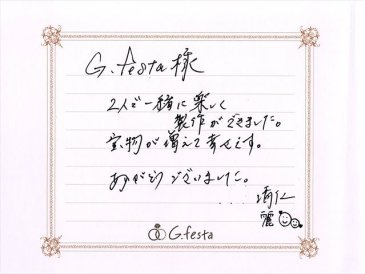 G.festa様
2人で一緒に楽しく
製作ができました。
宝物が増えて幸せです。
ありがとうございました。
清仁
麗
G.festa